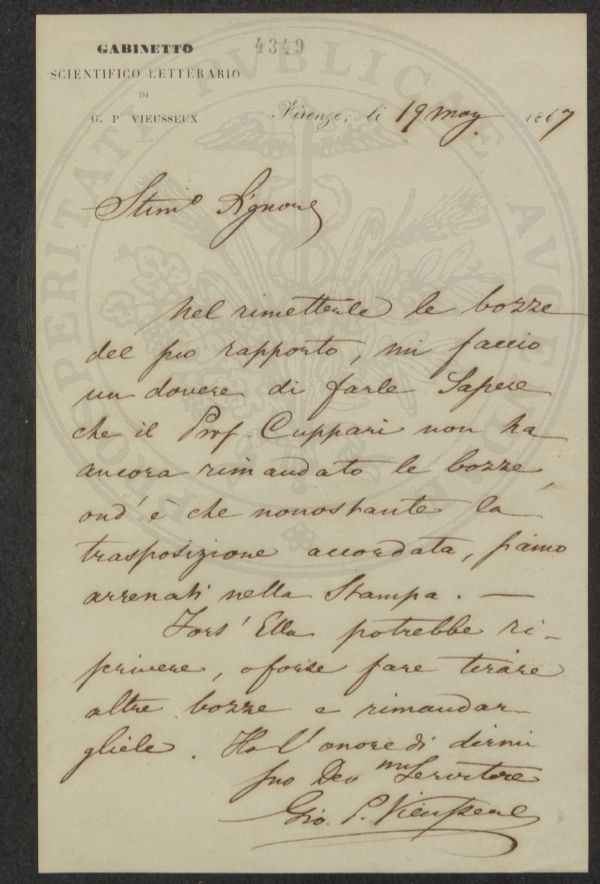 GABINETTO
SCIENTIFICO LETTERARIO
DI
G. P. VIEUSSEUX
4349
Firenze, li 19 May 1867
PROSPERITATI PVBLICAE AVGENDAE
Stimo Signore
nel rimetterle le bozze
del suo rapporto, mi faccio
un dovere di farle Sapere
che il Prof. Cuppari non ha
ancora rimandato le bozze,
ond' è che nonostante la
trasposizione accordata, siamo
arrenati nella Stampa. —
Fors' Ella potrebbe ri-
scrivere, o forse fare tirare
altre bozze e rimandar-
gliele. Ho l'onore di dirmi
suo Devmo Servitore
Gio. P. Vieusseux